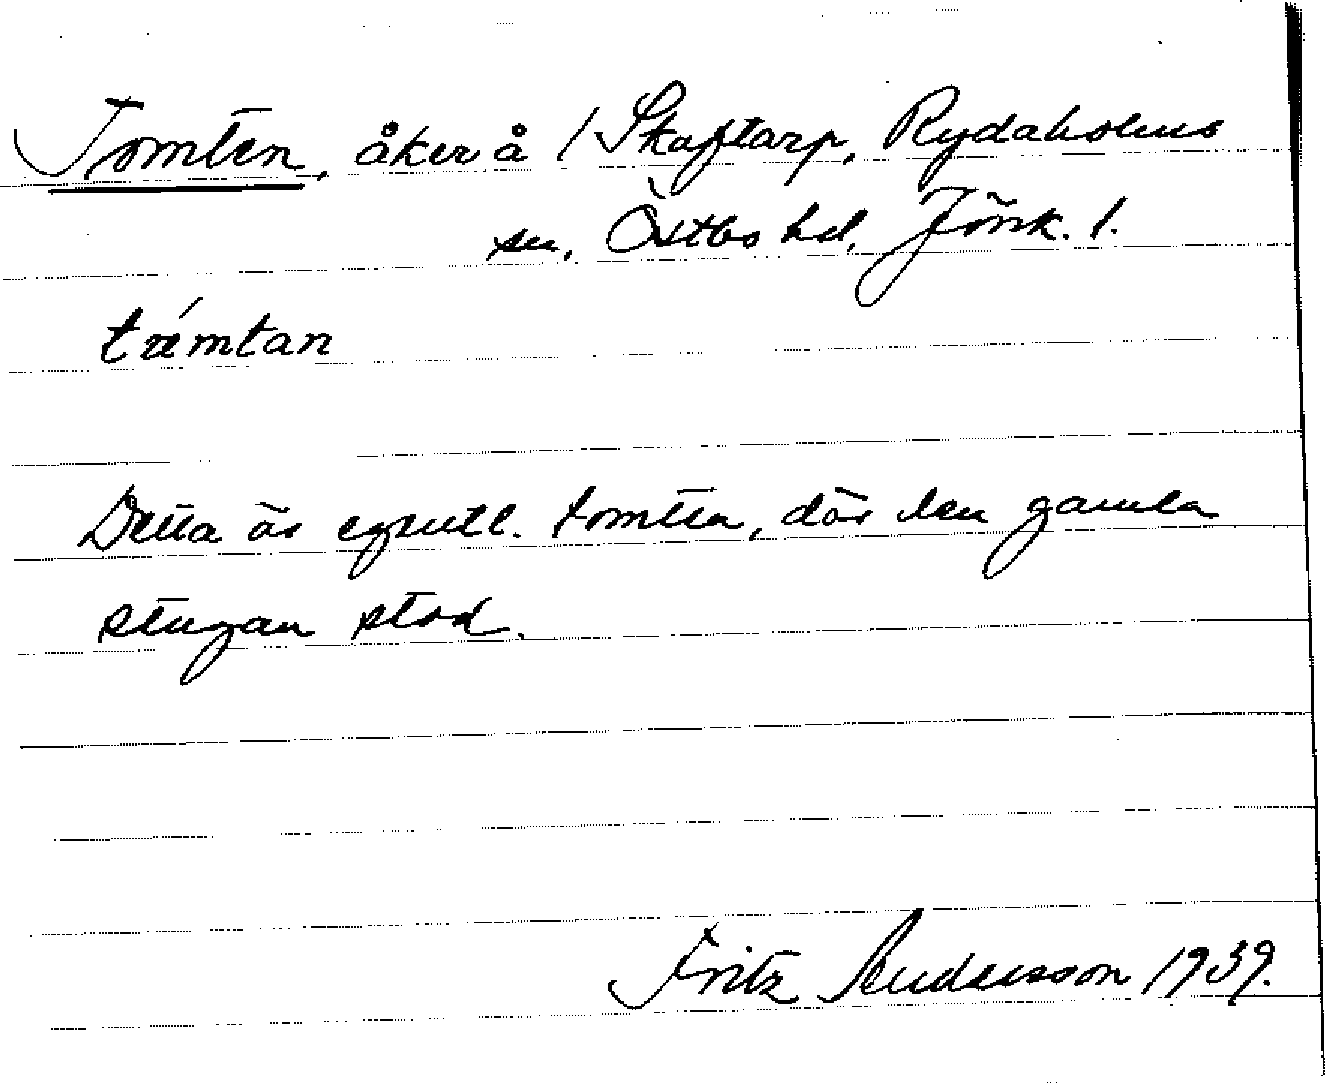 Tomten, åker å 1 Skaftarp, Rydaholms
sn, Östbo hd, Jönk. l.
Detta är egentl. tomten, där den gamla
stugan stod.
Fritz Andersson 1939.